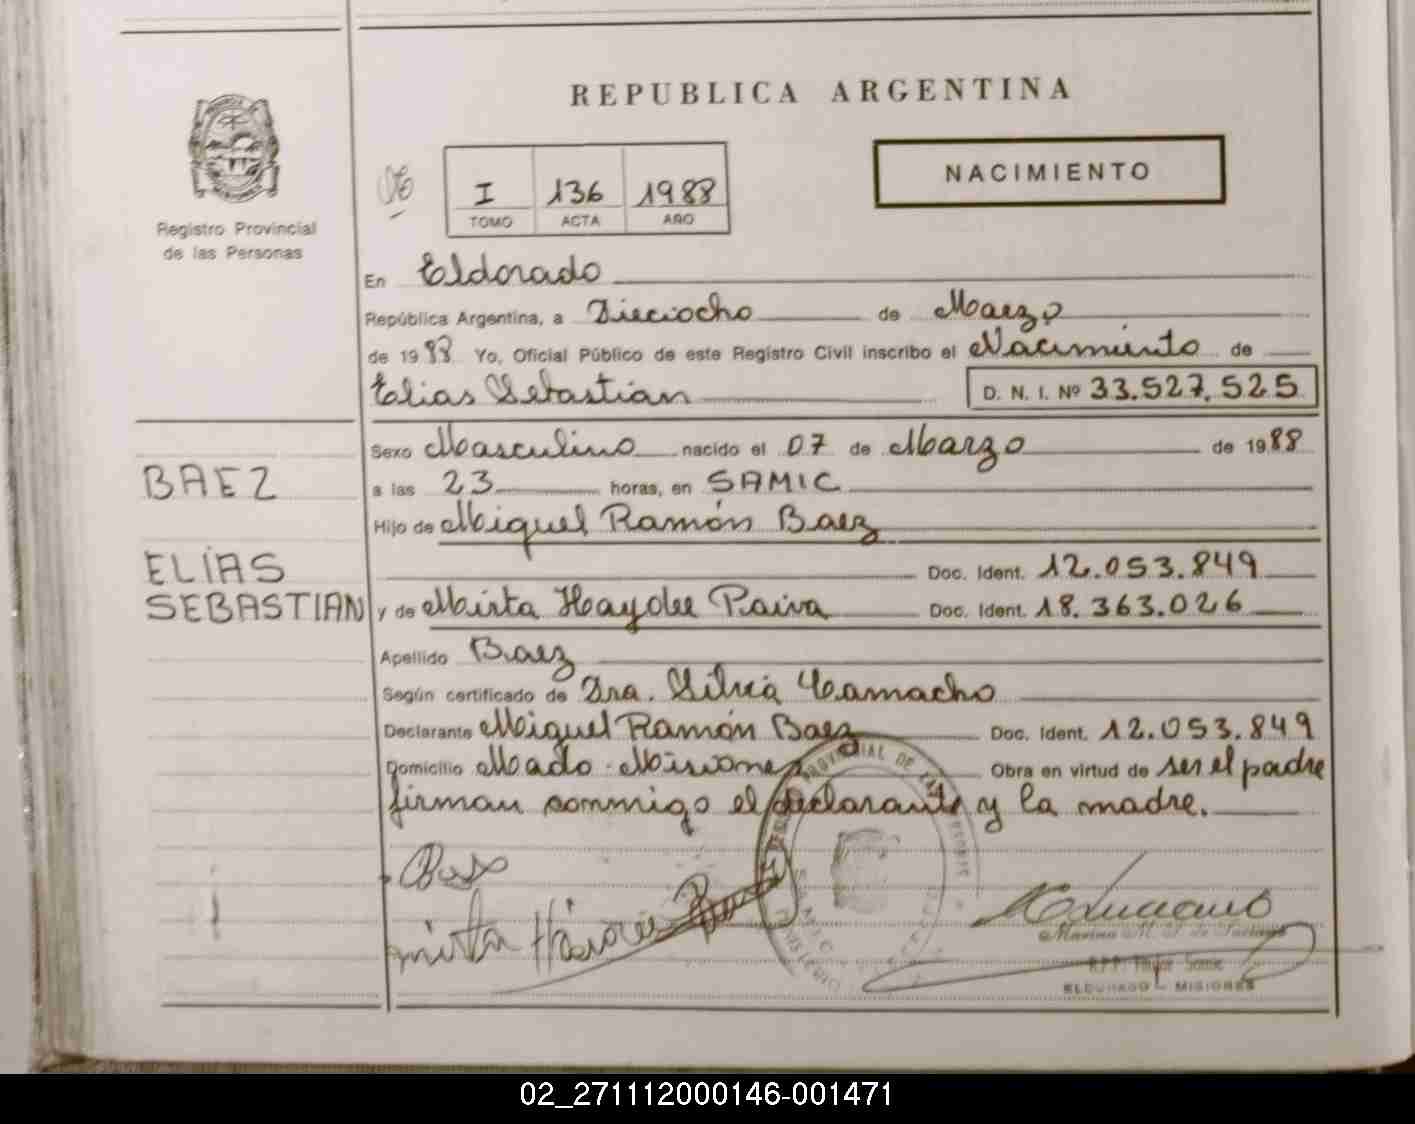 REPUBLICA ARGENTINA
NACIMIENTO
I 136 1988
TOMO ACTA AÑO
Registro Provincial
de las Personas
En Eldorado
República Argentina, a Dieciocho de Marzo
de 1988 Yo, Oficial Público de este Registro Civil inscribo el Nacimiento de
Elias Sebastian D. N. I. Nº 33.527.525
Sexo Masculino nacido el 07 de Marzo de 1988
BAEZ
a las 23 horas, en SAMIC
Hijo de Miguel Ramón Baez
ELÍAS
SEBASTIAN
Doc. Ident. 12.053.849
y de Mirta Haydee Paiva Doc. Ident. 18.363.026
Apellido Baez
Según certificado de Dra. Silvia Camacho
Declarante Miguel Ramón Baez Doc. Ident. 12.053.849
Domicilio Mado - Misiones Obra en virtud de ser el padre
firman conmigo el declarante y la madre.
PROVINCIAL DE LAS
mirta
ELDORADO - MISIONES
02_271112000146-001471